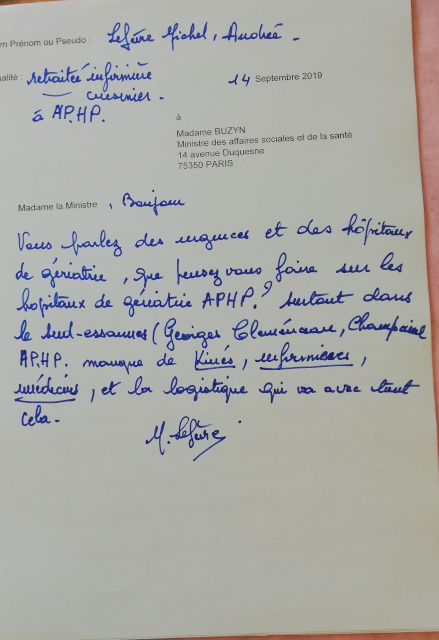 m Prénom ou Pseudo : Lefèvre Michel, Andrée -
ualité : retraitée infirmière
— cuisinier -
à APHP.
14 Septembre 2019
à
Madame BUZYN
Ministre des affaires sociales et de la santé
14 avenue Duquesne
75350 PARIS
Madame la Ministre , Bonjour
Vous parlez des urgences et des hôpitaux
de gériatrie, que pensez vous faire sur les
hopitaux de gériatrie APHP.? surtout dans
le sud-essonnes (Georges Clemenceau, Champcueil
APHP. manque de Kinés, infirmières,
médecins, et la logistique qui va avec tout
cela.
M. Lefèvre